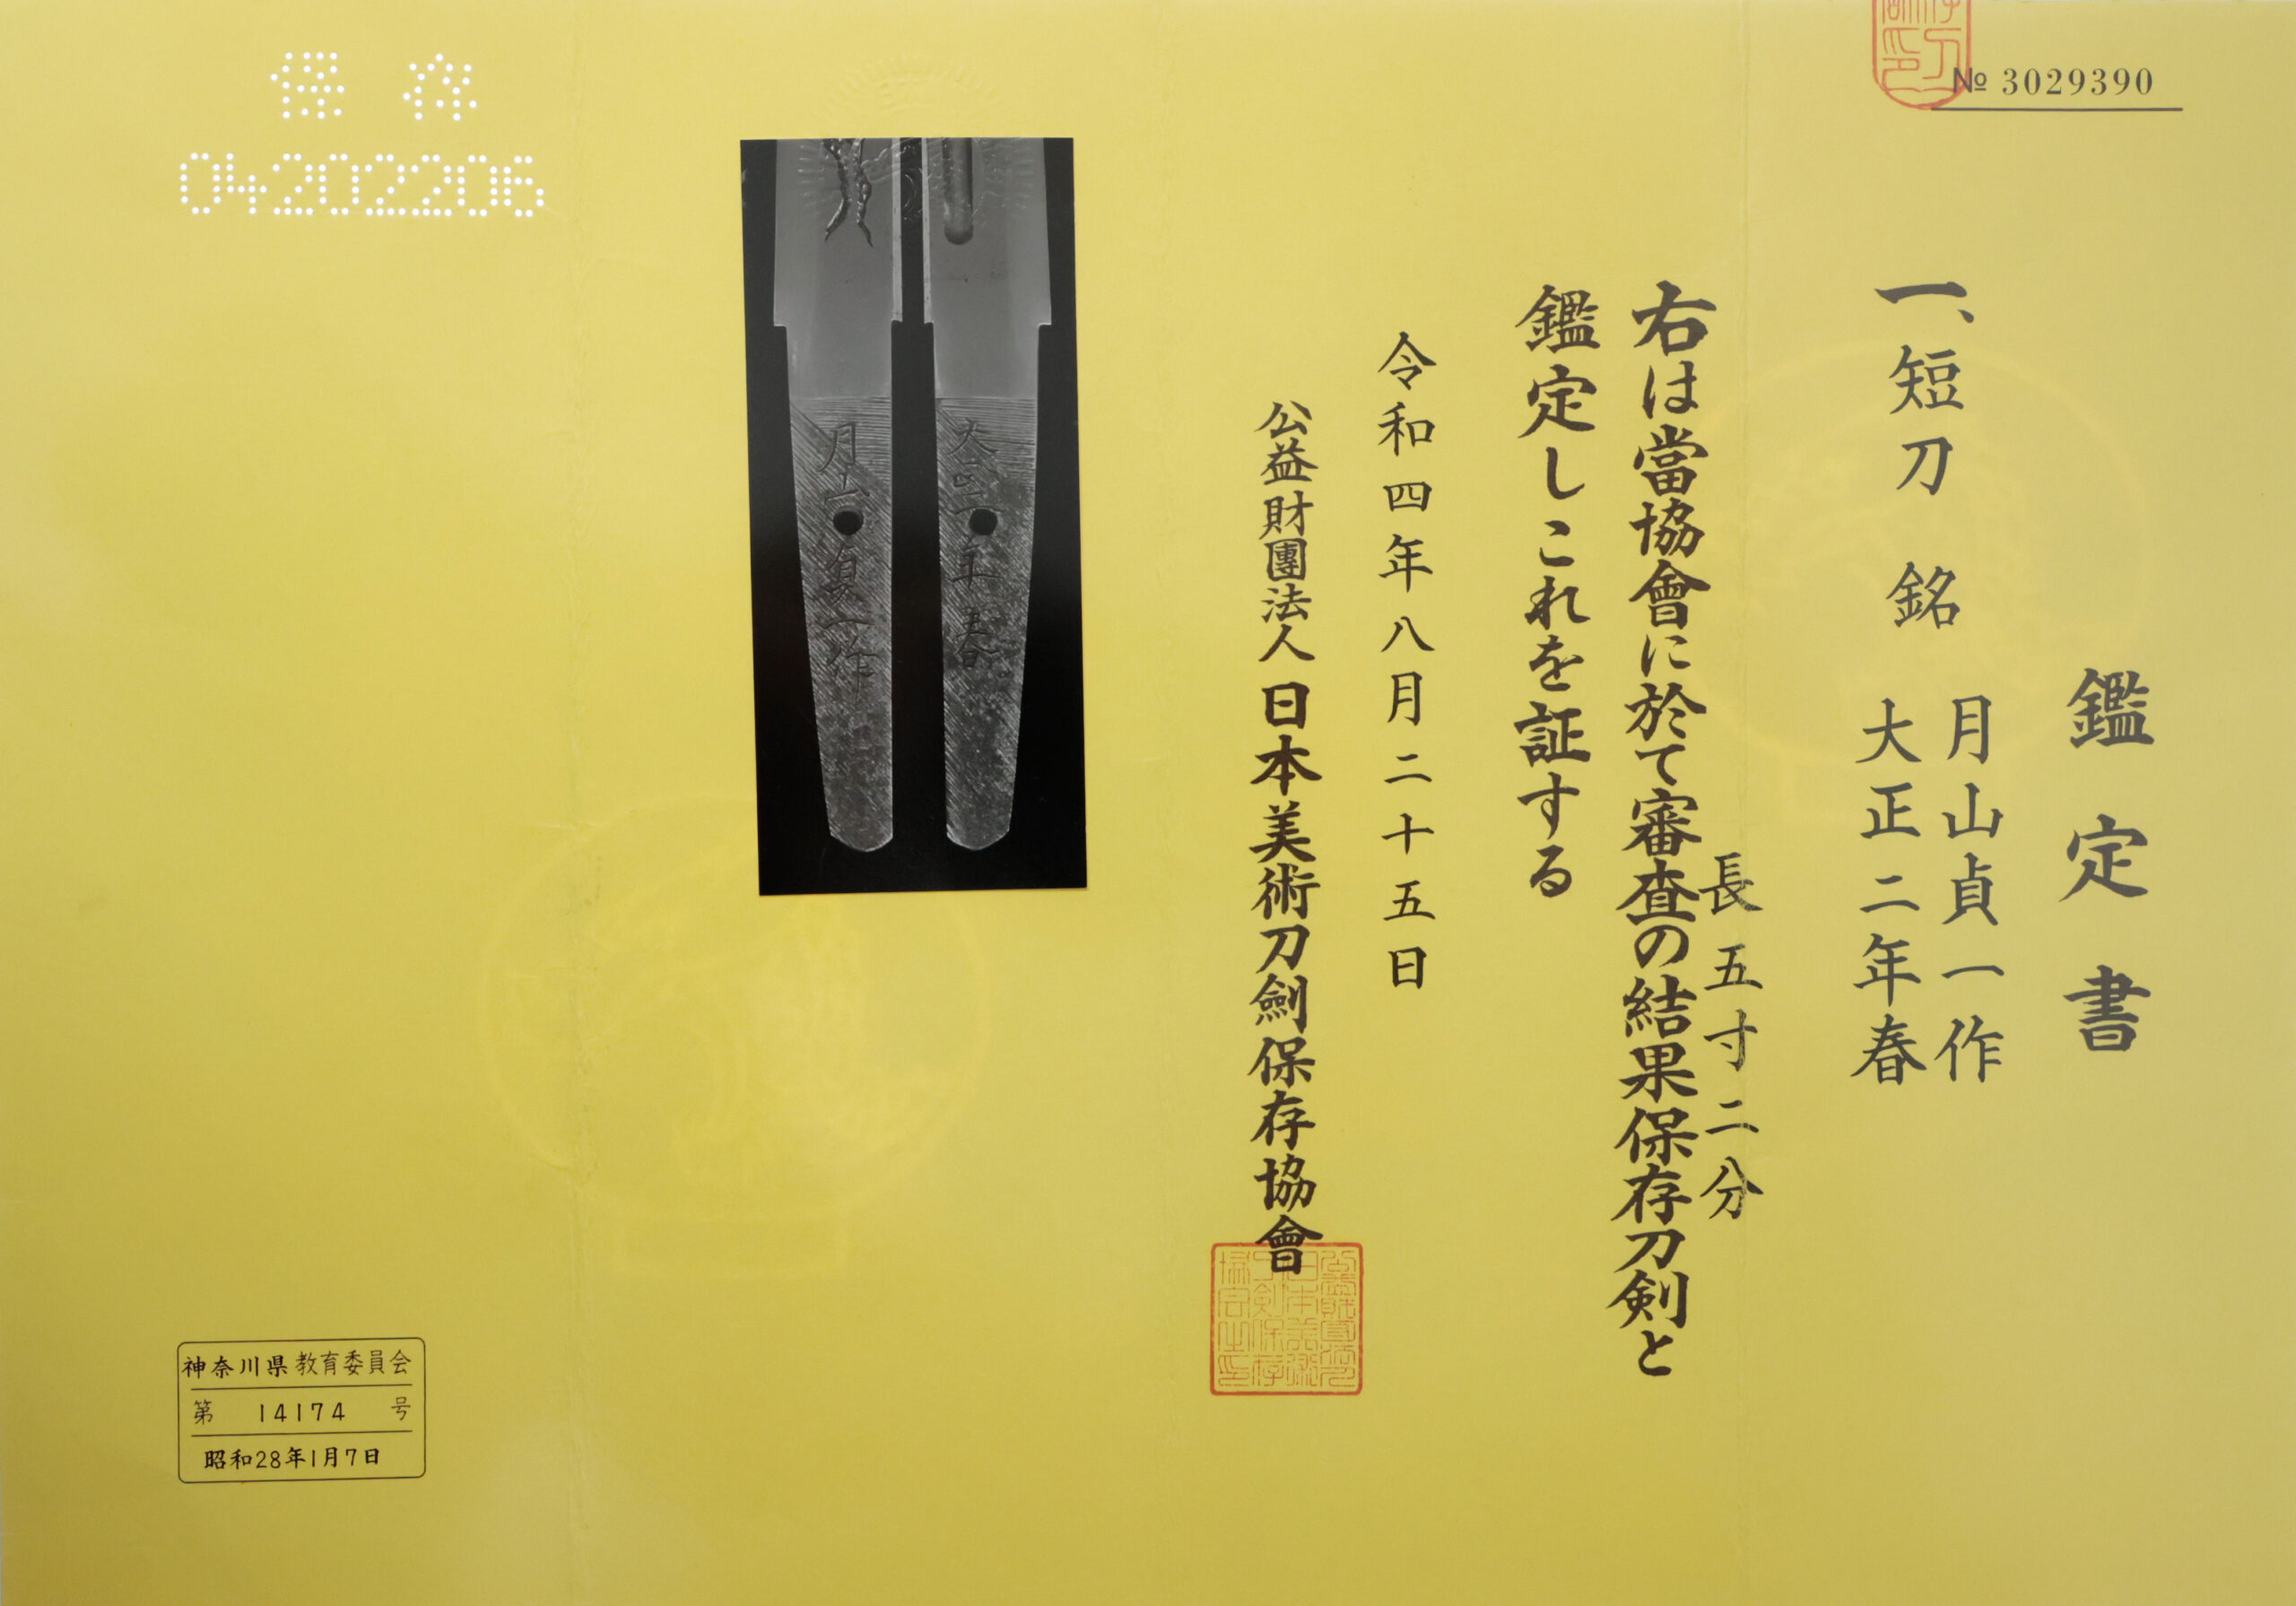 № 3029390
鑑定書
一、短刀 銘 月山貞一作
大正二年春
長五寸二分
右は當協會に於て審査の結果保存刀剣と
鑑定しこれを証する
令和四年八月二十五日
公益財團法人 日本美術刀劍保存協會
月山貞一作
大正二年春
保存
04202206
神奈川県教育委員会
第 14174 号
昭和28年1月7日